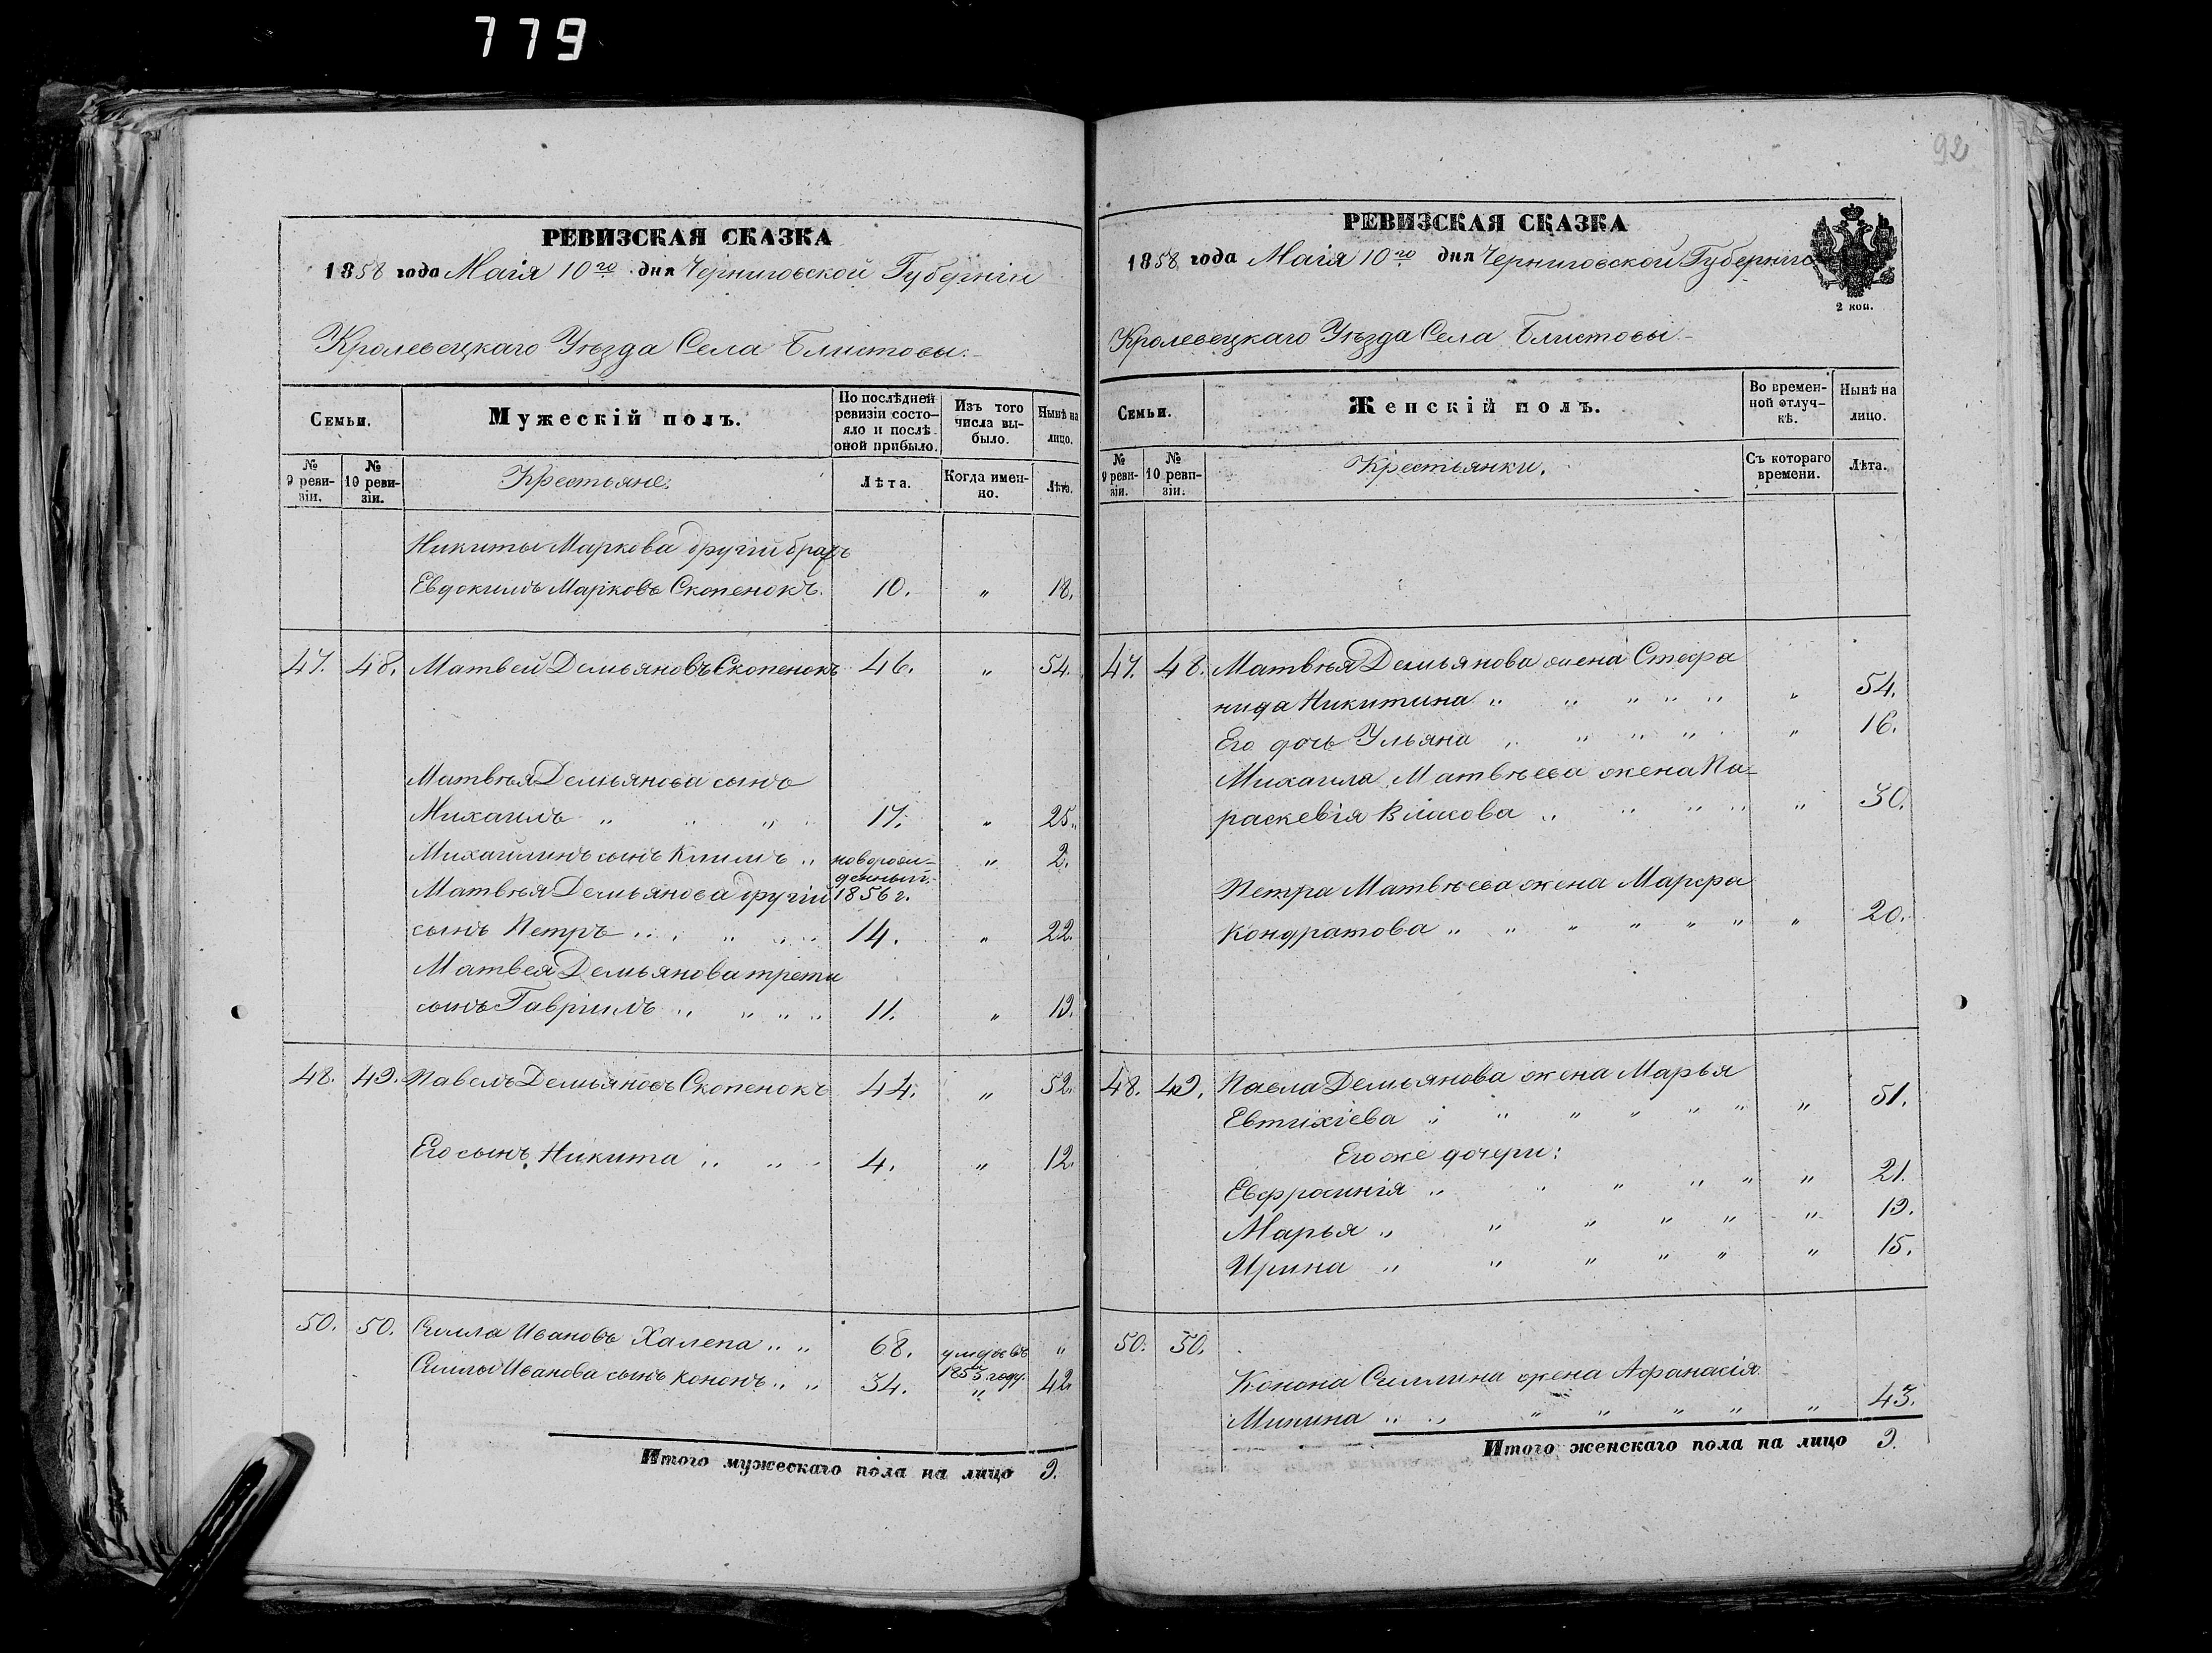 779
92
РЕВИЗСКАЯ СКАЗКА
1858 года Маія 10го дня Черниговской Губерніи
Кролевецкаго Уѣзда Села Блистовы.
Семьи.
Мужескій полъ.
По послѣдней ревизіи состояло и послѣ оной прибыло.
Изъ того числа выбыло.
Нынѣ на лицо.
№ 9 ревизіи.
№ 10 ревизіи.
Крестьяне.
Лѣта.
Когда именно.
Лѣта.
Никиты Маркова другій братъ
Евдокимъ Марковъ Скопенокъ. 10. " 18.
47. 48. Матвей Демьяновъ Скопенокъ 46. " 54.
Матвѣя Демьянова сынъ
Михаилъ " " " " 17. " 25.
Михайлинъ сынъ Климъ " новорож-денный 1856 г. " 2.
Матвѣя Демьянова другій
сынъ Петръ " " " " 14. " 22.
Матвея Демьянова трети
сынъ Гавріилъ " " " " 11. " 19.
48. 49. Павелъ Демьяновъ Скопенокъ 44. " 52.
Его сынъ Никита " " " 4. " 12.
50. 50. Сылла Ивановъ Халепа " " 68. умеръ въ 1853 году "
Сыллы Иванова сынъ Кононъ " " 34. " 42.
Итого мужескаго пола на лицо 9.
РЕВИЗСКАЯ СКАЗКА
1858 года Маія 10го дня Черниговской Губерніи
2 коп.
Кролевецкаго Уѣзда Села Блистовы
Семьи.
Женскій полъ.
Во временной отлучкѣ.
Нынѣ на лицо.
№ 9 ревизіи.
№ 10 ревизіи.
Крестьянки.
Съ котораго времени.
Лѣта.
47. 48. Матвѣя Демьянова жена Стефа
нида Никитина " " " " " " 54.
Его дочь Ульяна " " " " " 16.
Михаила Матвѣева жена Па-
раскевія Власова " " " " " 30.
Петра Матвѣева жена Марфа
Кондратова " " " " " " " 20.
48. 49. Павла Демьянова жена Марья
Евтихіева " " " " " " " 51.
Его же дочери:
Евфросинія " " " " " " 21.
Марья " " " " " " 19.
Ирина " " " " " " 15.
50. 50.
Конона Силлина жена Афанасія
Минина " " " " " " " 43.
Итого женскаго пола на лицо 9.